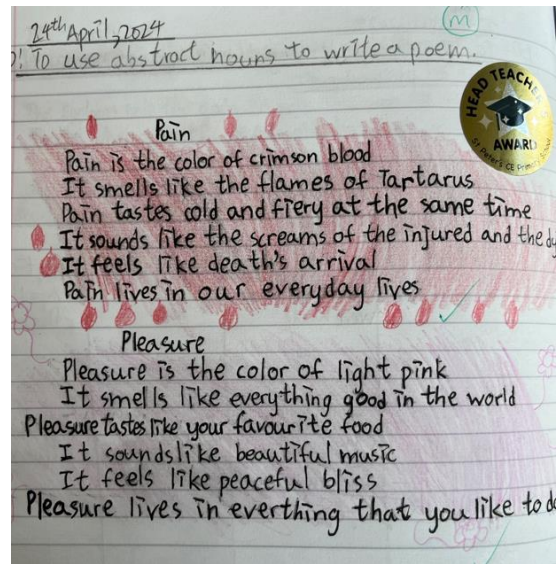 24th April, 2024
O: To use abstract nouns to write a poem.
M
HEAD TEACHER
AWARD
St Peter's CE Primary School
Pain
Pain is the color of crimson blood
It smells like the flames of Tartarus
Pain tastes cold and fiery at the same time
It sounds like the screams of the injured and the dy
It feels like death's arrival
Pain lives in our everyday lives
Pleasure
Pleasure is the color of light pink
It smells like everything good in the world
Pleasure tastes like your favourite food
It sounds like beautiful music
It feels like peaceful bliss
Pleasure lives in everthing that you like to do